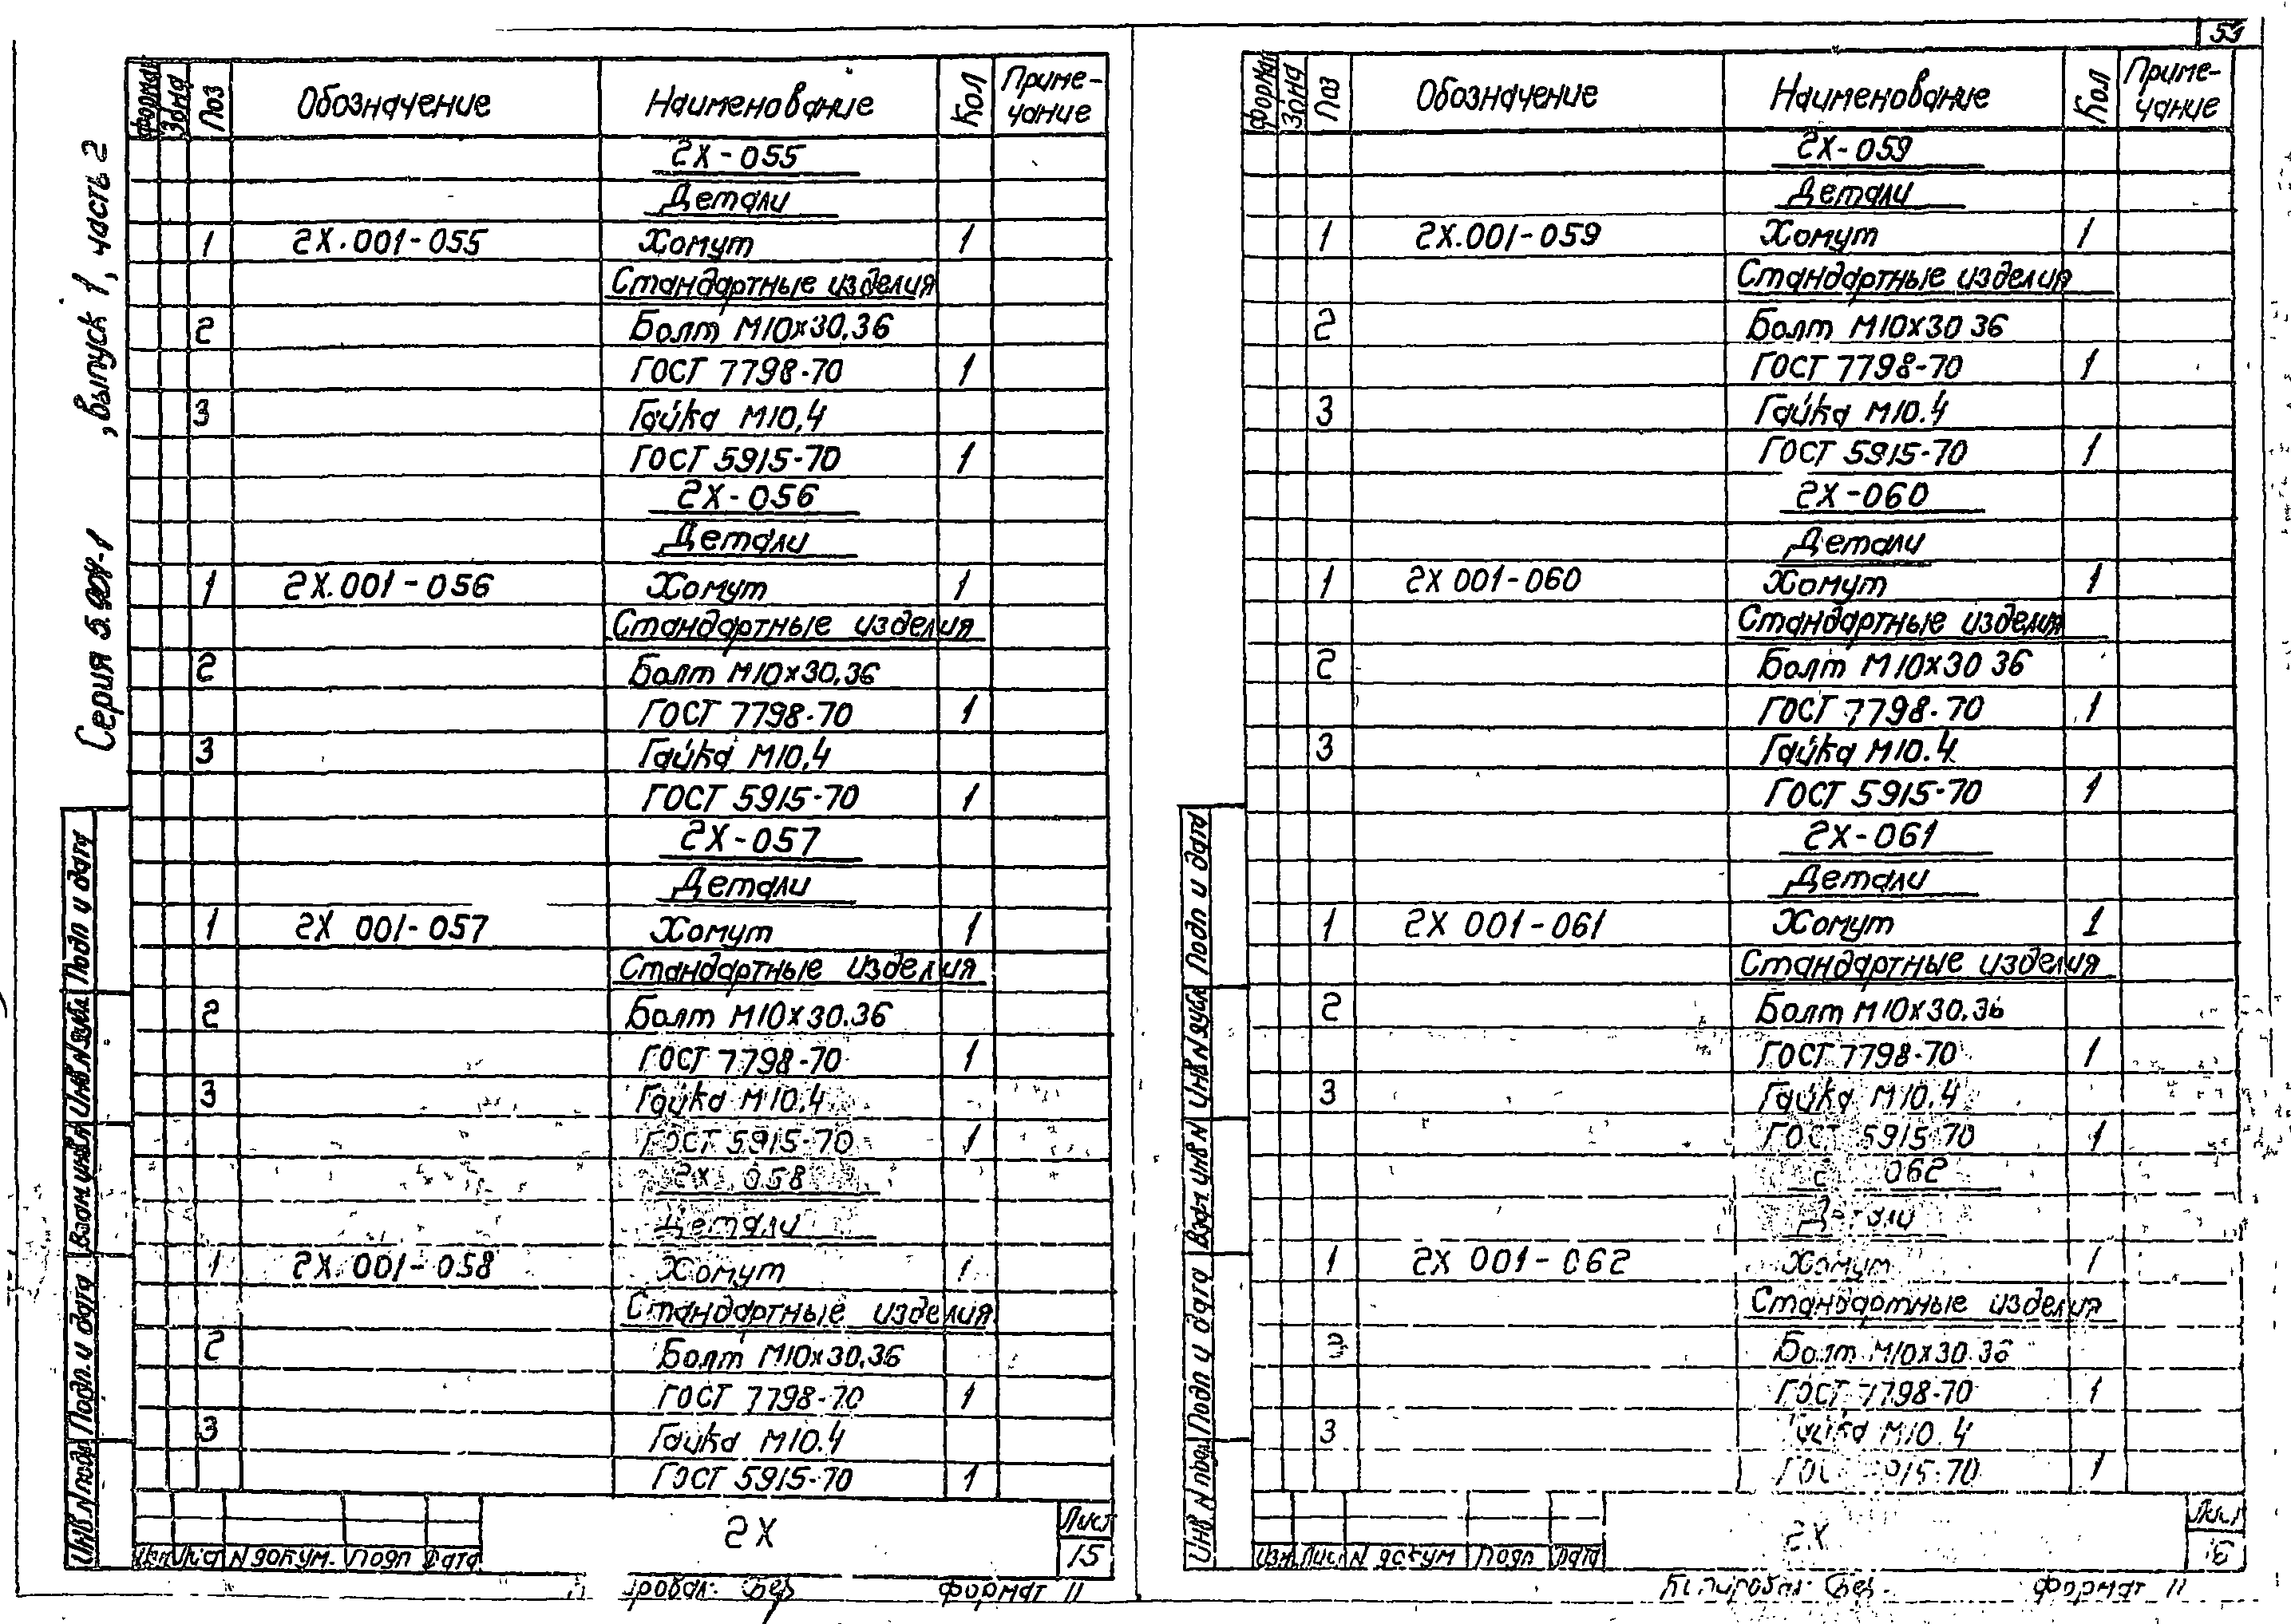 53
Серия 5.904-1 , выпуск 1, часть 2
Формат Зона Поз Обозначение Наименование Кол Приме-
чание
2Х-055
Детали
1 2Х.001-055 Хомут 1
Стандартные изделия
2 Болт М10х30.36
ГОСТ 7798-70 1
3 Гайка М10.4
ГОСТ 5915-70 1
2Х-056
Детали
1 2Х.001-056 Хомут 1
Стандартные изделия
2 Болт М10х30.36
ГОСТ 7798-70 1
3 Гайка М10.4
ГОСТ 5915-70 1
2Х-057
Детали
1 2Х 001-057 Хомут 1
Стандартные изделия
2 Болт М10х30.36
ГОСТ 7798-70 1
3 Гайка М10.4
ГОСТ 5915-70 1
2Х 058
Детали
1 2Х.001-058 Хомут 1
Стандартные изделия
2 Болт М10х30.36
ГОСТ 7798-70 1
3 Гайка М10.4
ГОСТ 5915-70 1
Подп и дата
Инв N дубл.
Взам инв N
Подп. и дата
Инв. N подл
Изм Лист N докум. Подп Дата
2Х
Лист
15
Формат 11
Формат Зона Поз Обозначение Наименование Кол Приме-
чание
2Х-059
Детали
1 2Х.001-059 Хомут 1
Стандартные изделия
2 Болт М10х30 36
ГОСТ 7798-70 1
3 Гайка М10.4
ГОСТ 5915-70 1
2Х-060
Детали
1 2Х 001-060 Хомут 1
Стандартные изделия
2 Болт М10х30 36
ГОСТ 7798-70 1
3 Гайка М10.4
ГОСТ 5915-70 1
2Х-061
Детали
1 2Х 001-061 Хомут 1
Стандартные изделия
2 Болт М10х30.36
ГОСТ 7798-70 1
3 Гайка М10.4
ГОСТ 5915 70 1
062
Детали
1 2Х 001-062 Хомут 1
Стандартные изделия
Болт М10х30 36
ГОСТ 7798-70 1
3 Гайка М10.4
ГОСТ 5915-70 1
Подп и дата
Инв N дубл
Взам инв N
Подп и дата
Инв. N подл
Изм Лист N докум Подп Дата
2Х
Лист
Копировал:
Формат 11